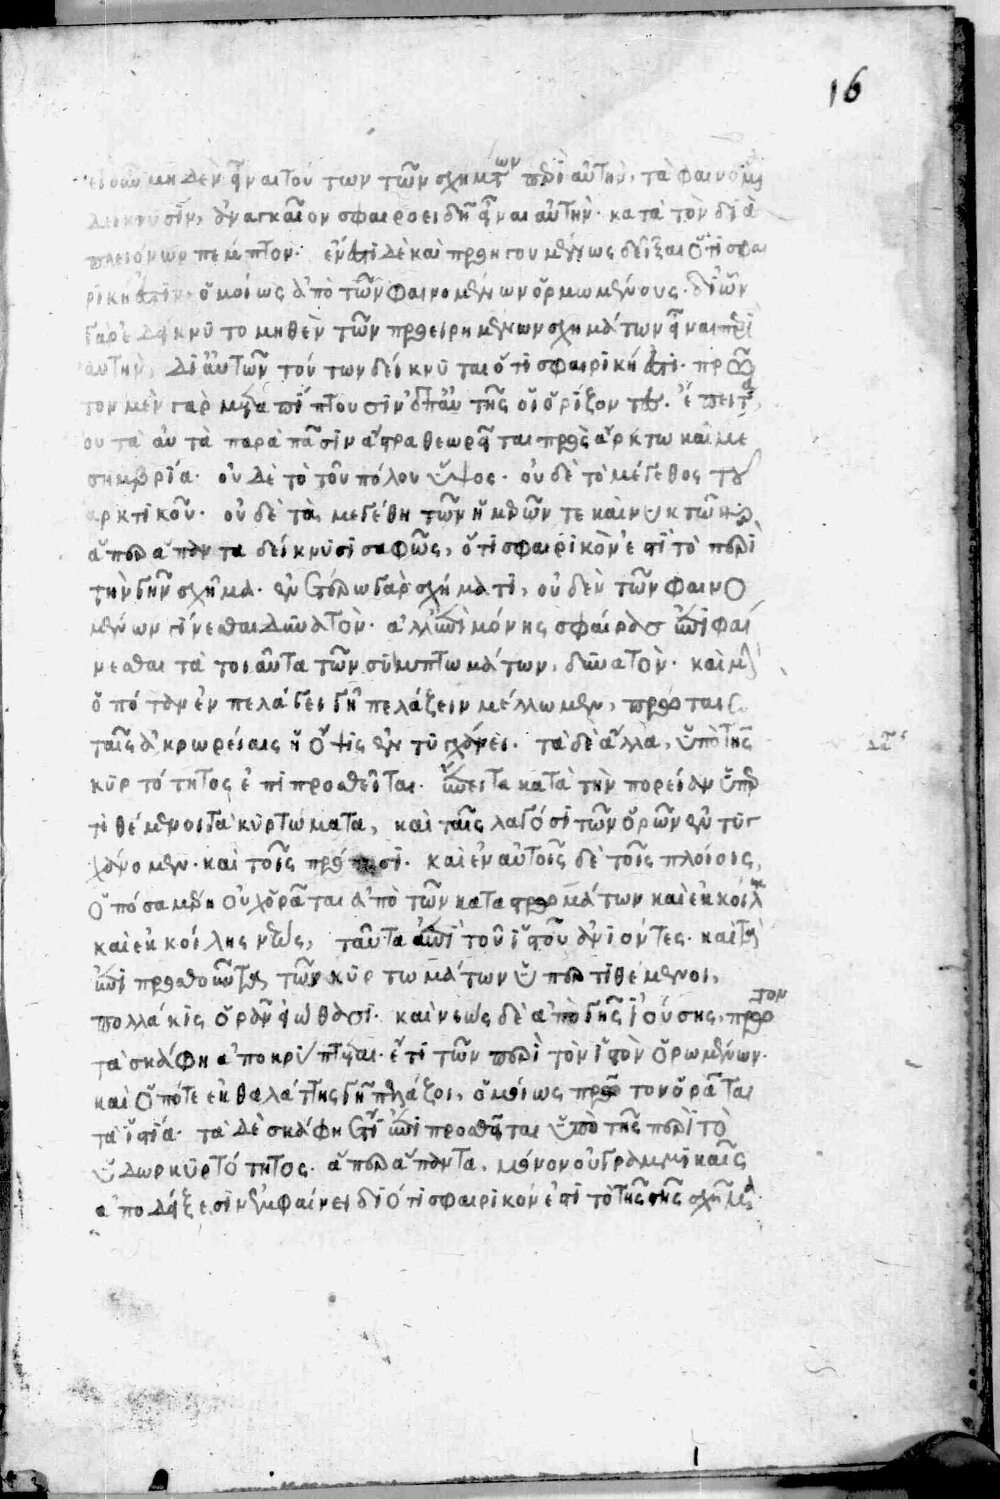 16
μηδὲν εἶναι τούτων τῶν σχημάτων περὶ αὐτὴν, τὰ φαινόμενα
δείκνυσιν, ἀναγκαῖον σφαιροειδῆ εἶναι αὐτὴν. κατὰ τὸν διὰ
πλειόνων πέμπτον. ἔνεστι δὲ καὶ προηγουμένως δεῖξαι ὅτι σφαι
ρική ἐστιν, ὁμοίως ἀπὸ τῶν φαινομένων ὁρμωμένους. δι' ὧν
γὰρ ἐδείκνυτο μηθὲν τῶν προειρημένων σχημάτων εἶναι περὶ
αὐτὴν, δι' αὐτῶν τούτων δείκνυται ὅτι σφαιρική ἐστι. πρῶ
τον μὲν γὰρ μεταπίπτουσιν ἐπ' αὐτῆς οἱ ὁρίζοντες. ἔπειτα
οὐ τὰ αὐτὰ παρὰ πᾶσιν ἄστρα θεωρεῖται πρὸς ἄρκτω καὶ με
σημβρία. οὐδὲ τὸ τοῦ πόλου ὕψος. οὐδὲ τὸ μέγεθος τοῦ
ἀρκτικοῦ. οὐδὲ τὰ μεγέθη τῶν ἡμερῶν τε καὶ νυκτῶν
ἅπερ ἅπαντα δείκνυσι σαφῶς, ὅτι σφαιρικὸν ἐστὶ τὸ περὶ
τὴν γῆν σχῆμα. ἐν ἑτέρω γὰρ σχήματι, οὐδὲν τῶν φαινο
μένων γίνεσθαι δυνατὸν. ἀλλ' ἐπὶ μόνης σφαίρας ἐπιφαί
νεσθαι τὰ τοιαῦτα τῶν συμπτωμάτων, δυνατὸν. καὶ μὴν
ὁπόταν ἐν πελάγει γῆ πελάζειν μέλλωμεν, πρῶταις
ταῖς ἀκρωρείαις ἡ ὄψις ἐντυγχάνει. τὰ δὲ ἄλλα, ὑπὸ τῆς
κυρτότητος ἐπιπροσθεῖται. ἔπειτα κατὰ τὴν πορείαν ὑπερ
τιθέμενοι τὰ κυρτώματα, καὶ ταῖς λαγόσι τῶν ὀρῶν ἐντυγ
χάνομεν. καὶ τοῖς πρόποσι. καὶ ἐν αὐτοῖς δὲ τοῖς πλοίοις,
ὁπόσα μέρη οὐχ ὁρᾶται ἀπὸ τῶν καταστρωμάτων καὶ ἐκ κοίλης
καὶ ἐκ κοίλης νεὼς, ταῦτα ἐπὶ τοῦ ἱστοῦ ἀνιόντες. καὶ τῆς
ἐπιπροσθούσης τῶν κυρτωμάτων ὑπερτιθέμενοι,
πολλάκις ὁρᾶν εἰώθασι. καὶ νεὼς δὲ ἀπὸ γῆς ἰούσης, πρῶτον
τὰ σκάφη ἀποκρύπτεται. ἔτι τῶν περὶ τὸν ἱστὸν ὁρωμένων.
καὶ ὁπότε ἐκ θαλάττης γῆ πελάζοι, ὁμοίως πρῶτον ὁρᾶται
τὰ ἱστία. τὰ δὲ σκάφη ἔτι ἐπιπροσθεῖται ὑπὸ τῆς περὶ τὸ
ὕδωρ κυρτότητος. ἅπερ ἅπαντα, μόνον οὐ γραμμικαῖς
ἀποδείξεσιν ἐμφαίνει διότι σφαιρικόν ἐστὶ τὸ τῆς γῆς σχῆμα.